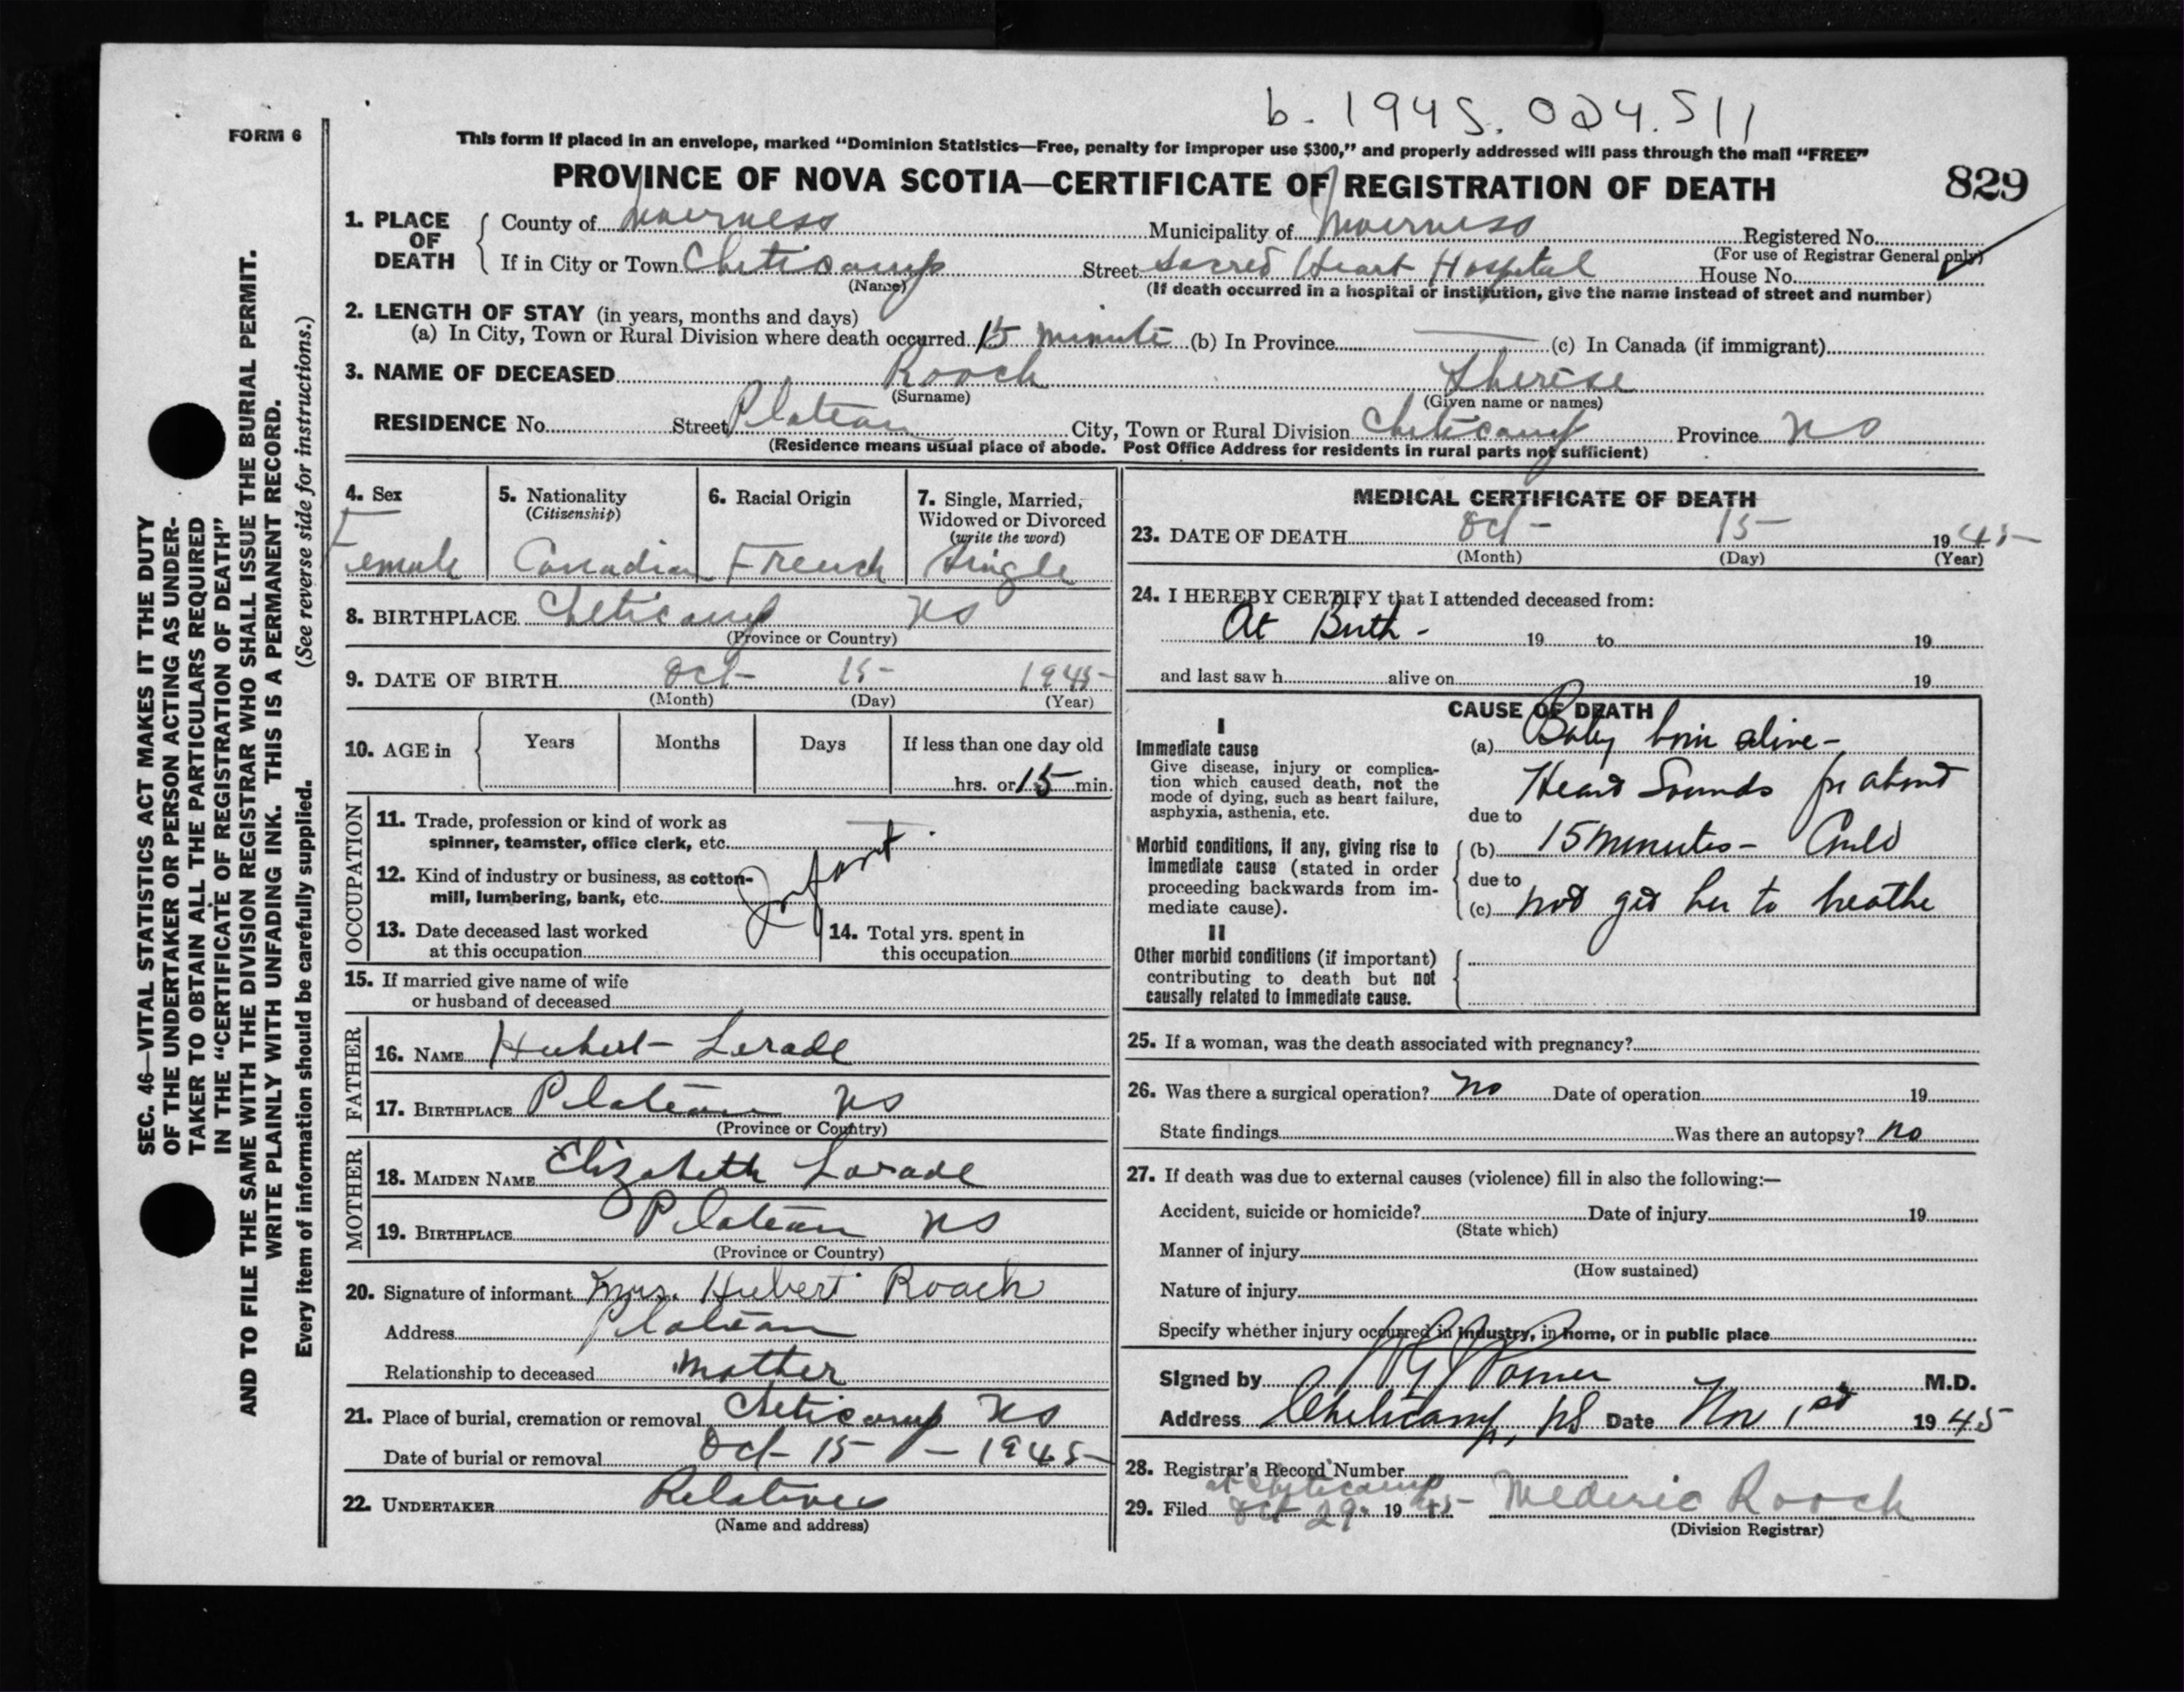 b. 1945. 024.511
FORM 6
This form if placed in an envelope, marked "Dominion Statistics—Free, penalty for improper use $300," and properly addressed will pass through the mail "FREE"
PROVINCE OF NOVA SCOTIA—CERTIFICATE OF REGISTRATION OF DEATH
829
1. PLACE OF DEATH
County of Inverness Municipality of Inverness Registered No.
(For use of Registrar General only)
If in City or Town Cheticamp Street Sacred Heart Hospital House No.
(Name) (If death occurred in a hospital or institution, give the name instead of street and number)
2. LENGTH OF STAY (in years, months and days)
(a) In City, Town or Rural Division where death occurred 15 minute (b) In Province — (c) In Canada (if immigrant)
3. NAME OF DECEASED Roach Therese
(Surname) (Given name or names)
RESIDENCE No. Street Plateau City, Town or Rural Division Cheticamp Province NS
(Residence means usual place of abode. Post Office Address for residents in rural parts not sufficient)
4. Sex
Female
5. Nationality
(Citizenship)
Canadian
6. Racial Origin
French
7. Single, Married,
Widowed or Divorced
(write the word)
Single
8. BIRTHPLACE Cheticamp NS
(Province or Country)
9. DATE OF BIRTH Oct- 15- 1945-
(Month) (Day) (Year)
10. AGE in Years Months Days If less than one day old
hrs. or 15 min.
OCCUPATION
11. Trade, profession or kind of work as
spinner, teamster, office clerk, etc.
12. Kind of industry or business, as cotton-
mill, lumbering, bank, etc.
Infant
13. Date deceased last worked
at this occupation
14. Total yrs. spent in
this occupation
15. If married give name of wife
or husband of deceased
FATHER
16. NAME Hubert-
17. BIRTHPLACE Plateau NS
(Province or Country)
MOTHER
18. MAIDEN NAME Elizabeth
19. BIRTHPLACE Plateau NS
(Province or Country)
20. Signature of informant Mrs. Hubert Roach
Address Plateau
Relationship to deceased mother
21. Place of burial, cremation or removal Cheticamp NS
Date of burial or removal Oct- 15 - 1945-
22. UNDERTAKER Relatives
(Name and address)
MEDICAL CERTIFICATE OF DEATH
23. DATE OF DEATH Oct- 15- 1945-
(Month) (Day) (Year)
24. I HEREBY CERTIFY that I attended deceased from:
At Birth - 19 to 19
and last saw h alive on 19
CAUSE OF DEATH
I
Immediate cause
Give disease, injury or complica-
tion which caused death, not the
mode of dying, such as heart failure,
asphyxia, asthenia, etc.
(a) Baby born alive-
Heart Sounds for about
due to
Morbid conditions, if any, giving rise to
immediate cause (stated in order
proceeding backwards from im-
mediate cause).
(b) 15 minutes- Could
due to
(c) not get her to breathe
II
Other morbid conditions (if important)
contributing to death but not
causally related to immediate cause.
25. If a woman, was the death associated with pregnancy?
26. Was there a surgical operation? No Date of operation 19
State findings Was there an autopsy? No
27. If death was due to external causes (violence) fill in also the following:—
Accident, suicide or homicide? Date of injury 19
(State which)
Manner of injury
(How sustained)
Nature of injury
Specify whether injury occurred in industry, in home, or in public place
Signed by M.D.
Address Cheticamp, NS Date Nov 1st 1945
28. Registrar's Record Number
at Cheticamp
29. Filed Oct 29- 1945- Mederic Roach
(Division Registrar)
SEC. 46—VITAL STATISTICS ACT MAKES IT THE DUTY
OF THE UNDERTAKER OR PERSON ACTING AS UNDER-
TAKER TO OBTAIN ALL THE PARTICULARS REQUIRED
IN THE "CERTIFICATE OF REGISTRATION OF DEATH"
AND TO FILE THE SAME WITH THE DIVISION REGISTRAR WHO SHALL ISSUE THE BURIAL PERMIT.
WRITE PLAINLY WITH UNFADING INK. THIS IS A PERMANENT RECORD.
Every item of information should be carefully supplied. (See reverse side for instructions.)